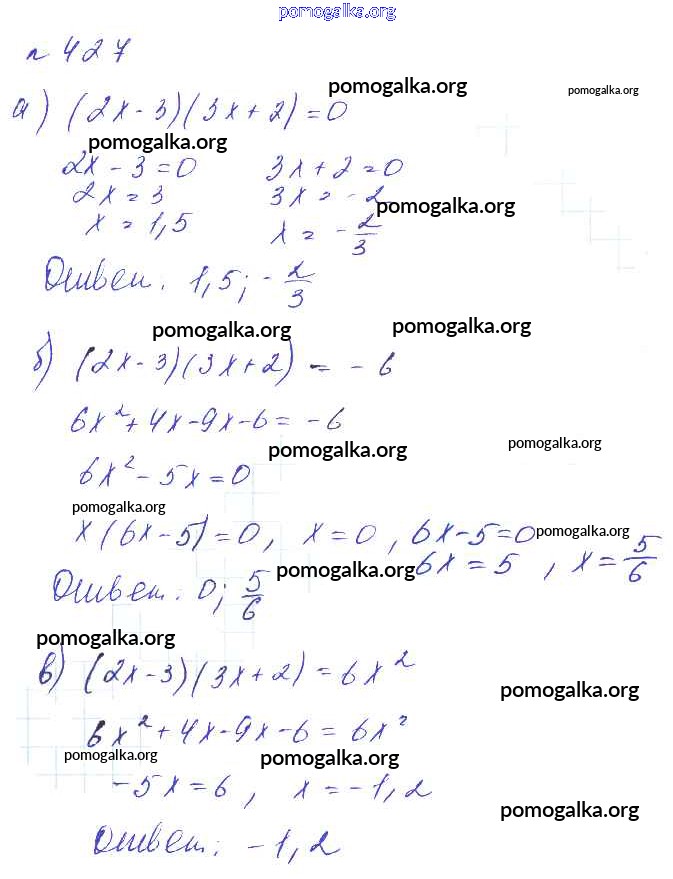 pomogalka.org
№ 427
а) (2x - 3)(3x + 2) = 0
pomogalka.org pomogalka.org
pomogalka.org
2x - 3 = 0 3x + 2 = 0
2x = 3 3x = - 2
pomogalka.org
x = 1,5 x = - 2/3
Ответ: 1,5; - 2/3
pomogalka.org pomogalka.org
б) (2x - 3)(3x + 2) = - 6
6x² + 4x - 9x - 6 = - 6
pomogalka.org pomogalka.org
6x² - 5x = 0
pomogalka.org
x (6x - 5) = 0, x = 0, 6x - 5 = 0
pomogalka.org
pomogalka.org 6x = 5, x = 5/6
Ответ: 0; 5/6
pomogalka.org
в) (2x - 3)(3x + 2) = 6x²
pomogalka.org
6x² + 4x - 9x - 6 = 6x²
pomogalka.org pomogalka.org
-5x = 6, x = -1,2
pomogalka.org
Ответ: -1,2